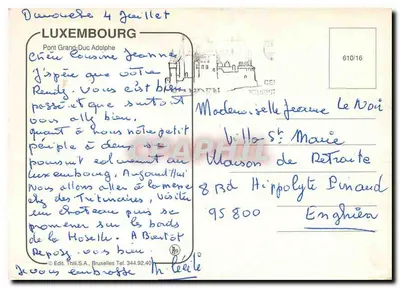 Dimanche 4 Juillet
LUXEMBOURG
Pont Grand-Duc Adolphe
Chère Cousine Jeanne
J'espère que votre
Rendez. Vous c'est bien
passé et que surtout
vous allé bien.
quant à nous notre petit
périple à deux, se
poursuit calmement au
Luxembourg. Aujourd'hui
nous allons aller à la messe
chez des Trétinaires, visiter
un château puis se
promener sur les bords
de la Moselle. A Bientôt
Reposez vous bien.
Je vous embrasse M. Cécile
© Edit. Thill S.A., Bruxelles Tel. 344.92.40
610/16
Mademoiselle Jeanne Le Noir
Villa St Marie
Maison de Retraite
8 Bd Hippolyte Pinaud
95800 Enghien